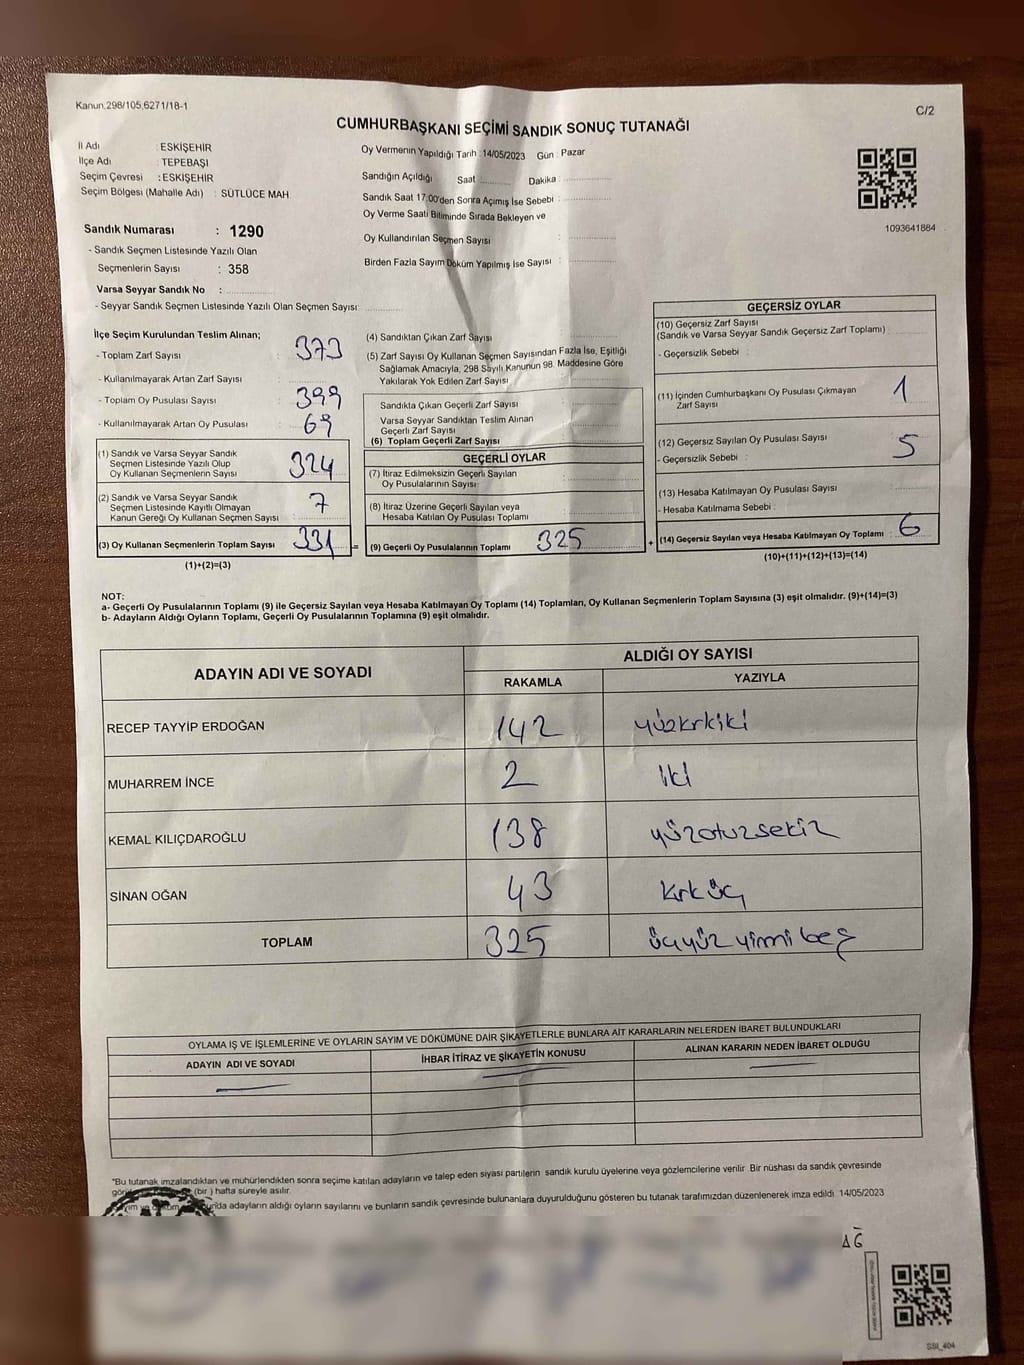 Kanun.298/105,6271/18-1
C/2
CUMHURBAŞKANI SEÇİMİ SANDIK SONUÇ TUTANAĞI
İl Adı : ESKİŞEHİR
İlçe Adı : TEPEBAŞI
Seçim Çevresi : ESKİŞEHİR
Seçim Bölgesi (Mahalle Adı) : SÜTLÜCE MAH
Sandık Numarası : 1290
- Sandık Seçmen Listesinde Yazılı Olan
Seçmenlerin Sayısı : 358
Varsa Seyyar Sandık No :
- Seyyar Sandık Seçmen Listesinde Yazılı Olan Seçmen Sayısı:
Oy Vermenin Yapıldığı Tarih : 14/05/2023 Gün : Pazar
Sandığın Açıldığı Saat Dakika :
Sandık Saat 17:00'den Sonra Açımış İse Sebebi :
Oy Verme Saati Bitiminde Sırada Bekleyen ve
Oy Kullandırılan Seçmen Sayısı :
Birden Fazla Sayım Döküm Yapılmış İse Sayısı :
1093641884
İlçe Seçim Kurulundan Teslim Alınan;
- Toplam Zarf Sayısı : 373
- Kullanılmayarak Artan Zarf Sayısı :
- Toplam Oy Pusulası Sayısı : 399
- Kullanılmayarak Artan Oy Pusulası : 69
(1) Sandık ve Varsa Seyyar Sandık
Seçmen Listesinde Yazılı Olup
Oy Kullanan Seçmenlerin Sayısı : 324
(2) Sandık ve Varsa Seyyar Sandık
Seçmen Listesinde Kayıtlı Olmayan
Kanun Gereği Oy Kullanan Seçmen Sayısı : 7
(3) Oy Kullanan Seçmenlerin Toplam Sayısı : 331 =
(1)+(2)=(3)
(4) Sandıktan Çıkan Zarf Sayısı :
(5) Zarf Sayısı Oy Kullanan Seçmen Sayısından Fazla İse, Eşitliği
Sağlamak Amacıyla, 298 Sayılı Kanunun 98. Maddesine Göre
Yakılarak Yok Edilen Zarf Sayısı :
Sandıkta Çıkan Geçerli Zarf Sayısı :
Varsa Seyyar Sandıktan Teslim Alınan
Geçerli Zarf Sayısı :
(6) Toplam Geçerli Zarf Sayısı :
GEÇERLİ OYLAR
(7) İtiraz Edilmeksizin Geçerli Sayılan
Oy Pusulalarının Sayısı :
(8) İtiraz Üzerine Geçerli Sayılan veya
Hesaba Katılan Oy Pusulası Toplamı :
(9) Geçerli Oy Pusulalarının Toplamı : 325 +
GEÇERSİZ OYLAR
(10) Geçersiz Zarf Sayısı
(Sandık ve Varsa Seyyar Sandık Geçersiz Zarf Toplamı) :
- Geçersizlik Sebebi :
(11) İçinden Cumhurbaşkanı Oy Pusulası Çıkmayan
Zarf Sayısı : 1
(12) Geçersiz Sayılan Oy Pusulası Sayısı : 5
- Geçersizlik Sebebi :
(13) Hesaba Katılmayan Oy Pusulası Sayısı :
- Hesaba Katılmama Sebebi :
(14) Geçersiz Sayılan veya Hesaba Katılmayan Oy Toplamı : 6
(10)+(11)+(12)+(13)=(14)
NOT:
a- Geçerli Oy Pusulalarının Toplamı (9) ile Geçersiz Sayılan veya Hesaba Katılmayan Oy Toplamı (14) Toplamları, Oy Kullanan Seçmenlerin Toplam Sayısına (3) eşit olmalıdır. (9)+(14)=(3)
b- Adayların Aldığı Oyların Toplamı, Geçerli Oy Pusulalarının Toplamına (9) eşit olmalıdır.
ADAYIN ADI VE SOYADI ALDIĞI OY SAYISI
RAKAMLA YAZIYLA
RECEP TAYYİP ERDOĞAN 142 yüzkrkiki
MUHARREM İNCE 2 iki
KEMAL KILIÇDAROĞLU 138 yüzotuzsekiz
SİNAN OĞAN 43 kırk üç
TOPLAM 325 üçyüz yirmi beş
OYLAMA İŞ VE İŞLEMLERİNE VE OYLARIN SAYIM VE DÖKÜMÜNE DAİR ŞİKAYETLERLE BUNLARA AİT KARARLARIN NELERDEN İBARET BULUNDUKLARI
ADAYIN ADI VE SOYADI İHBAR İTİRAZ VE ŞİKAYETİN KONUSU ALINAN KARARIN NEDEN İBARET OLDUĞU
*Bu tutanak imzalandıktan ve mühürlendikten sonra seçime katılan adayların ve talep eden siyasi partilerin sandık kurulu üyelerine veya gözlemcilerine verilir. Bir nüshası da sandık çevresinde
(bir) hafta süreyle asılır.
adayların aldığı oyların sayılarını ve bunların sandık çevresinde bulunanlara duyurulduğunu gösteren bu tutanak tarafımızdan düzenlenerek imza edildi. 14/05/2023
SSI_404